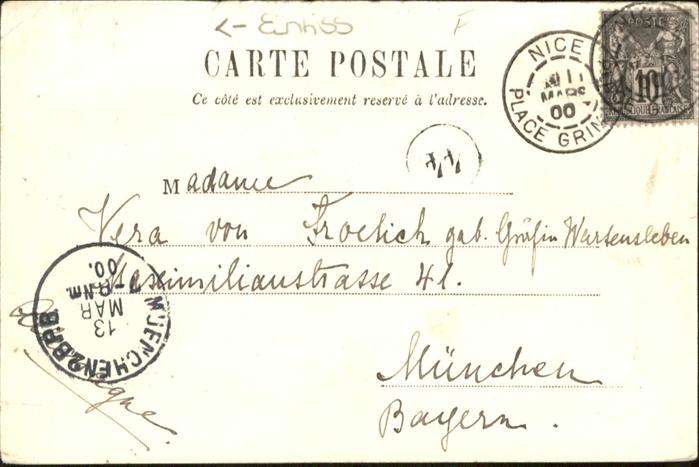 ← Einriss F
CARTE POSTALE
Ce côté est exclusivement reservé à l'adresse.
NICE
PLACE GRIM
MARS
00
POSTE
10
44
Madame
Vera von Froelich geb. Gräfin Wartensleben
Maximilianstrasse 41.
München
Bayern.
MUENCHEN 2 B.P.B
13
MAR
Nm.
00.